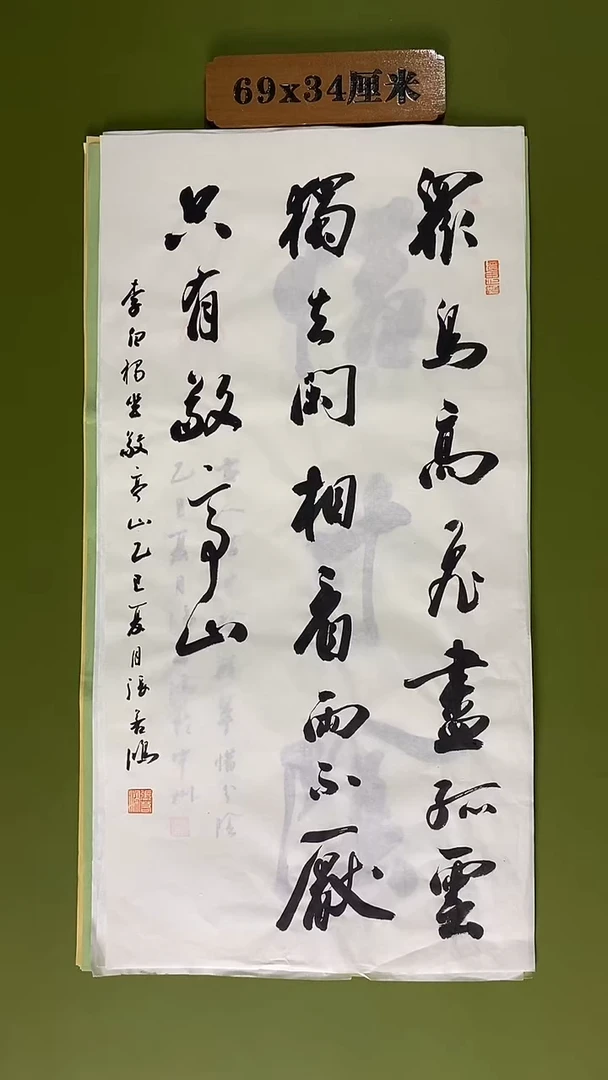 69x34厘米
眾鳥高飛盡孤雲
獨去閑相看兩不厭
只有敬亭山
李白獨坐敬亭山乙巳夏月張